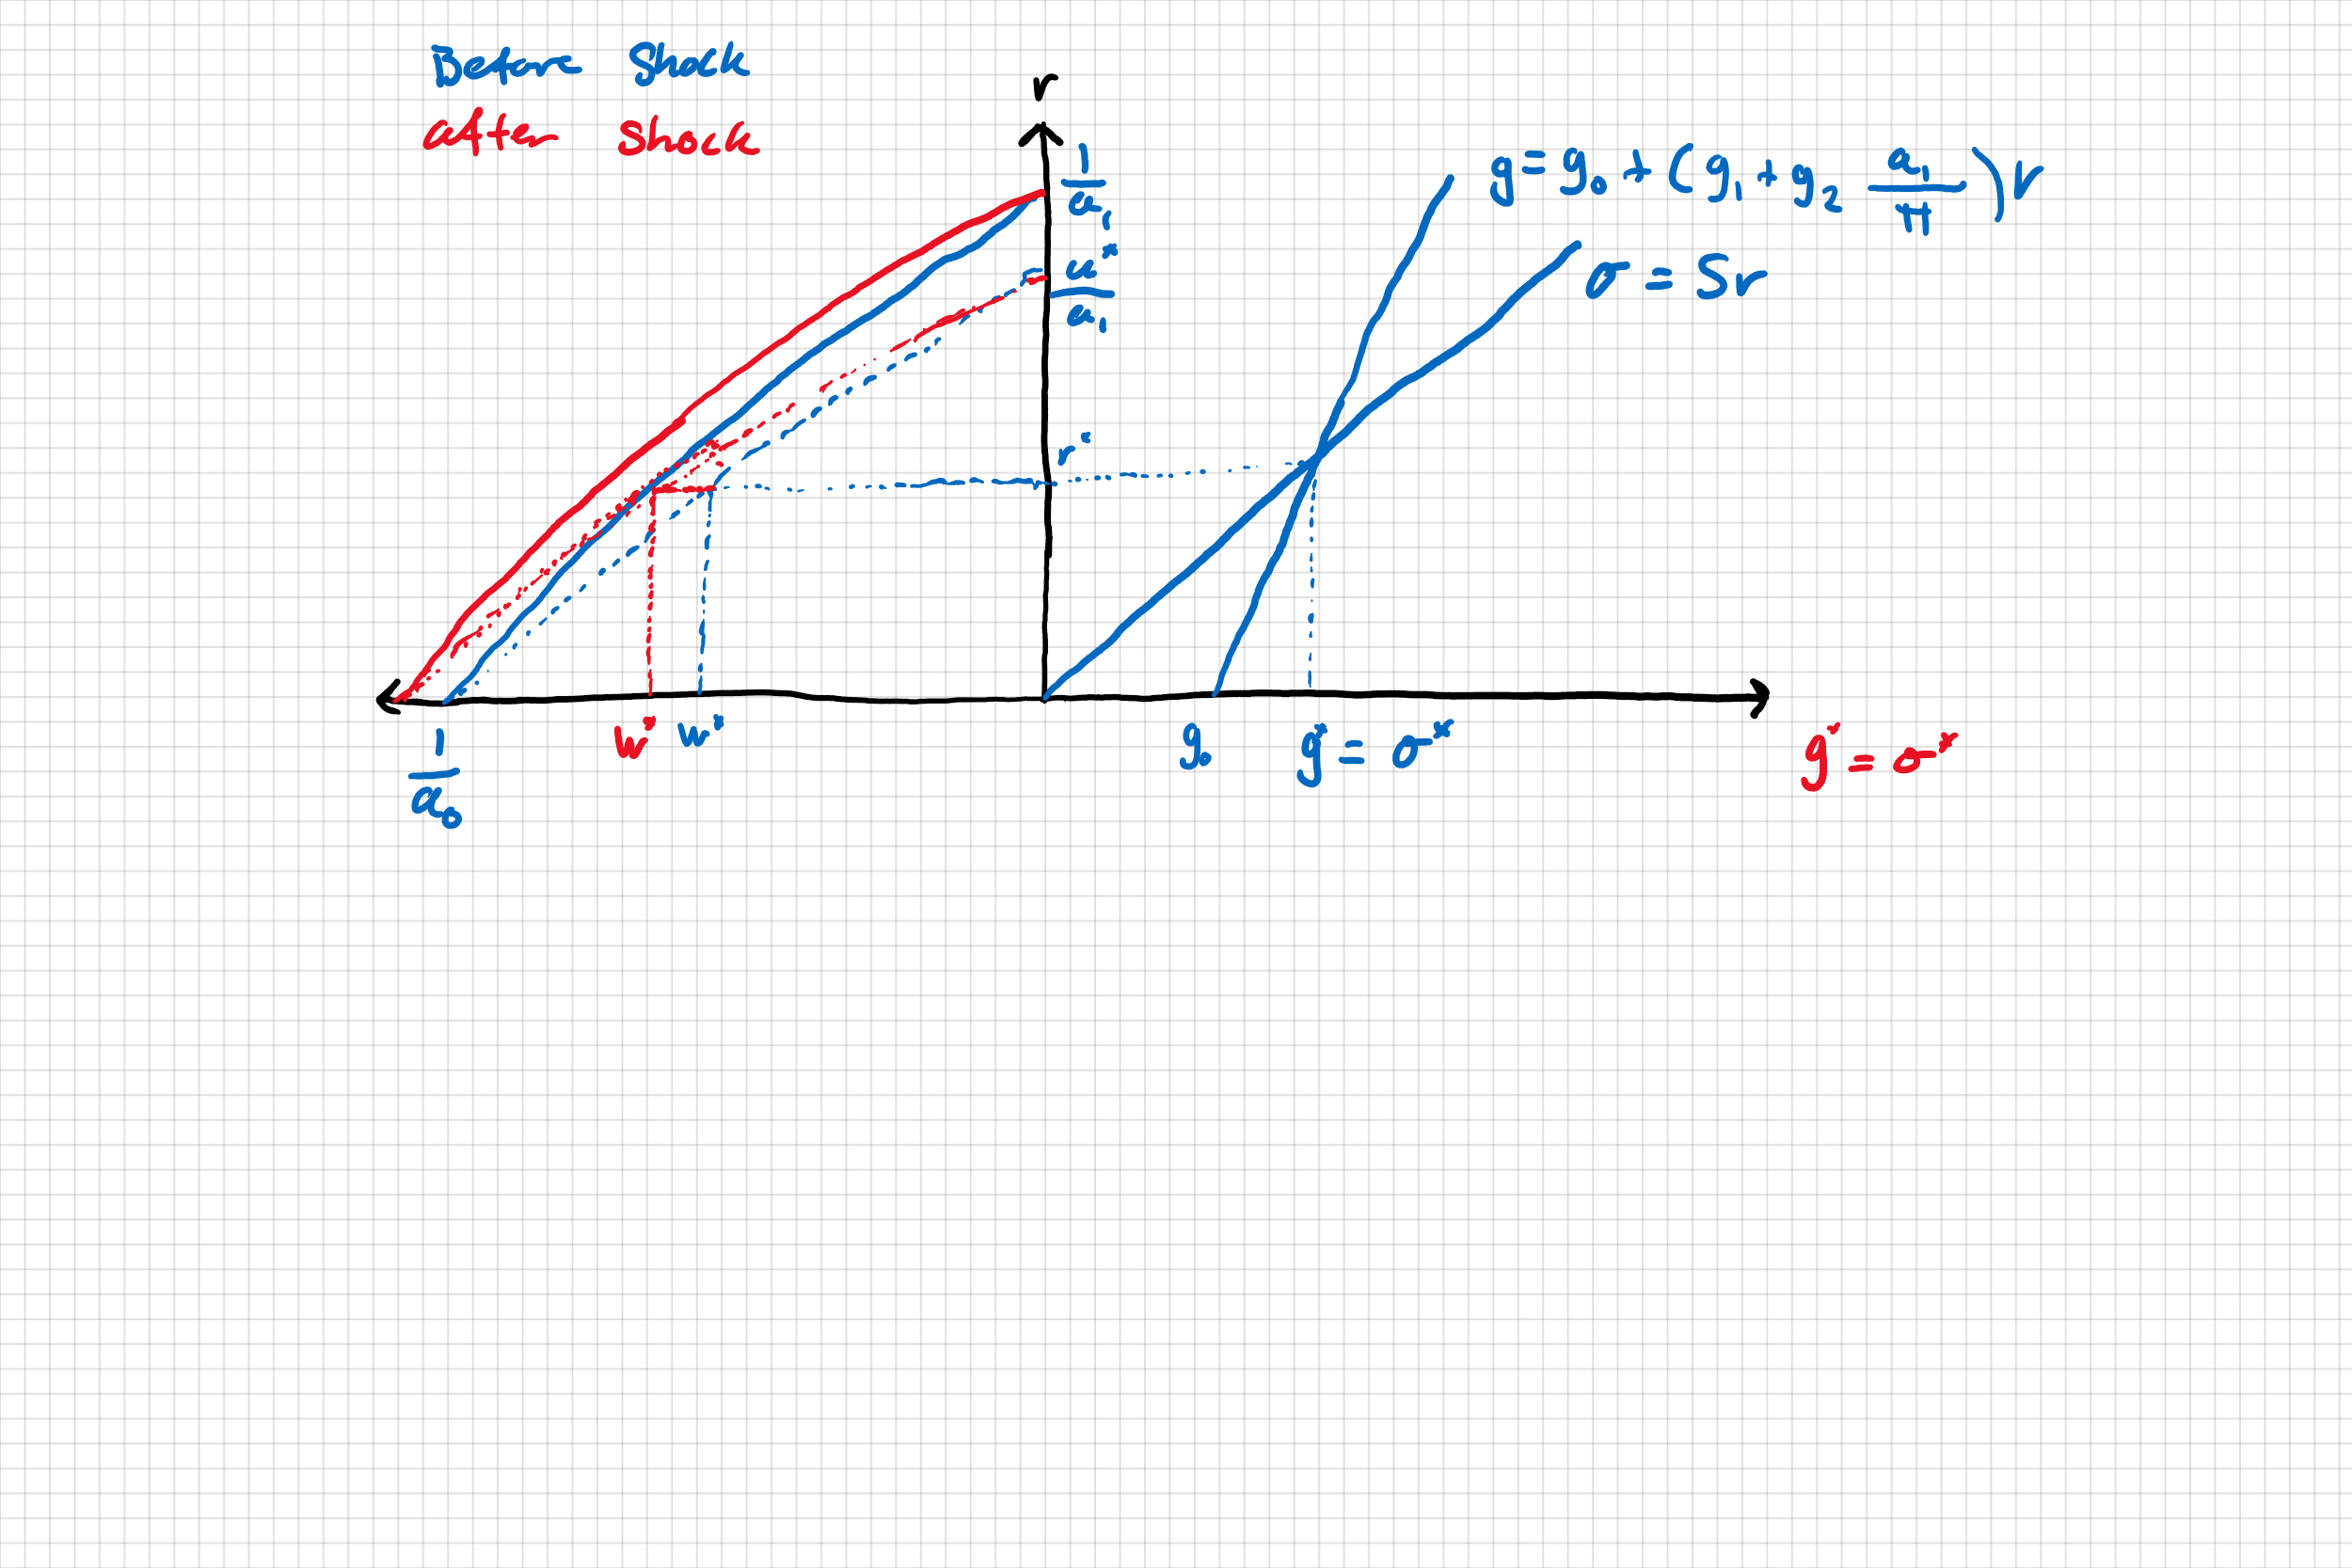 Before Shock
after Shock
r
1/a₁
u*/a₁
r*
g = g₀ + (g₁ + g₂ a₁/π) r
σ = Sr
1/a₀
w*
w*
g₀
g* = σ*
g* = σ*